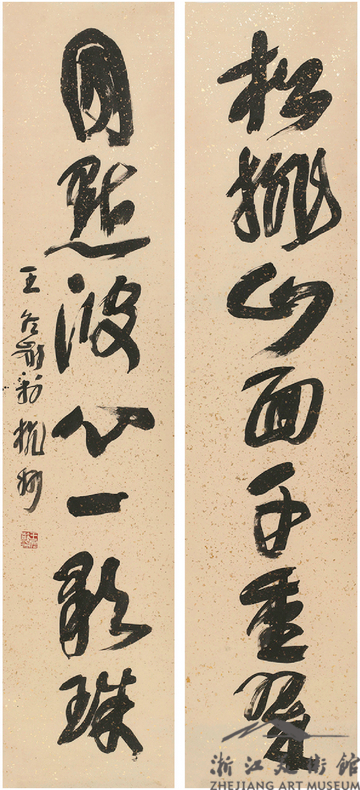 松排山面千重翠
月點波心一顆珠
王冬齡於杭州
浙江美術館
ZHEJIANG ART MUSEUM